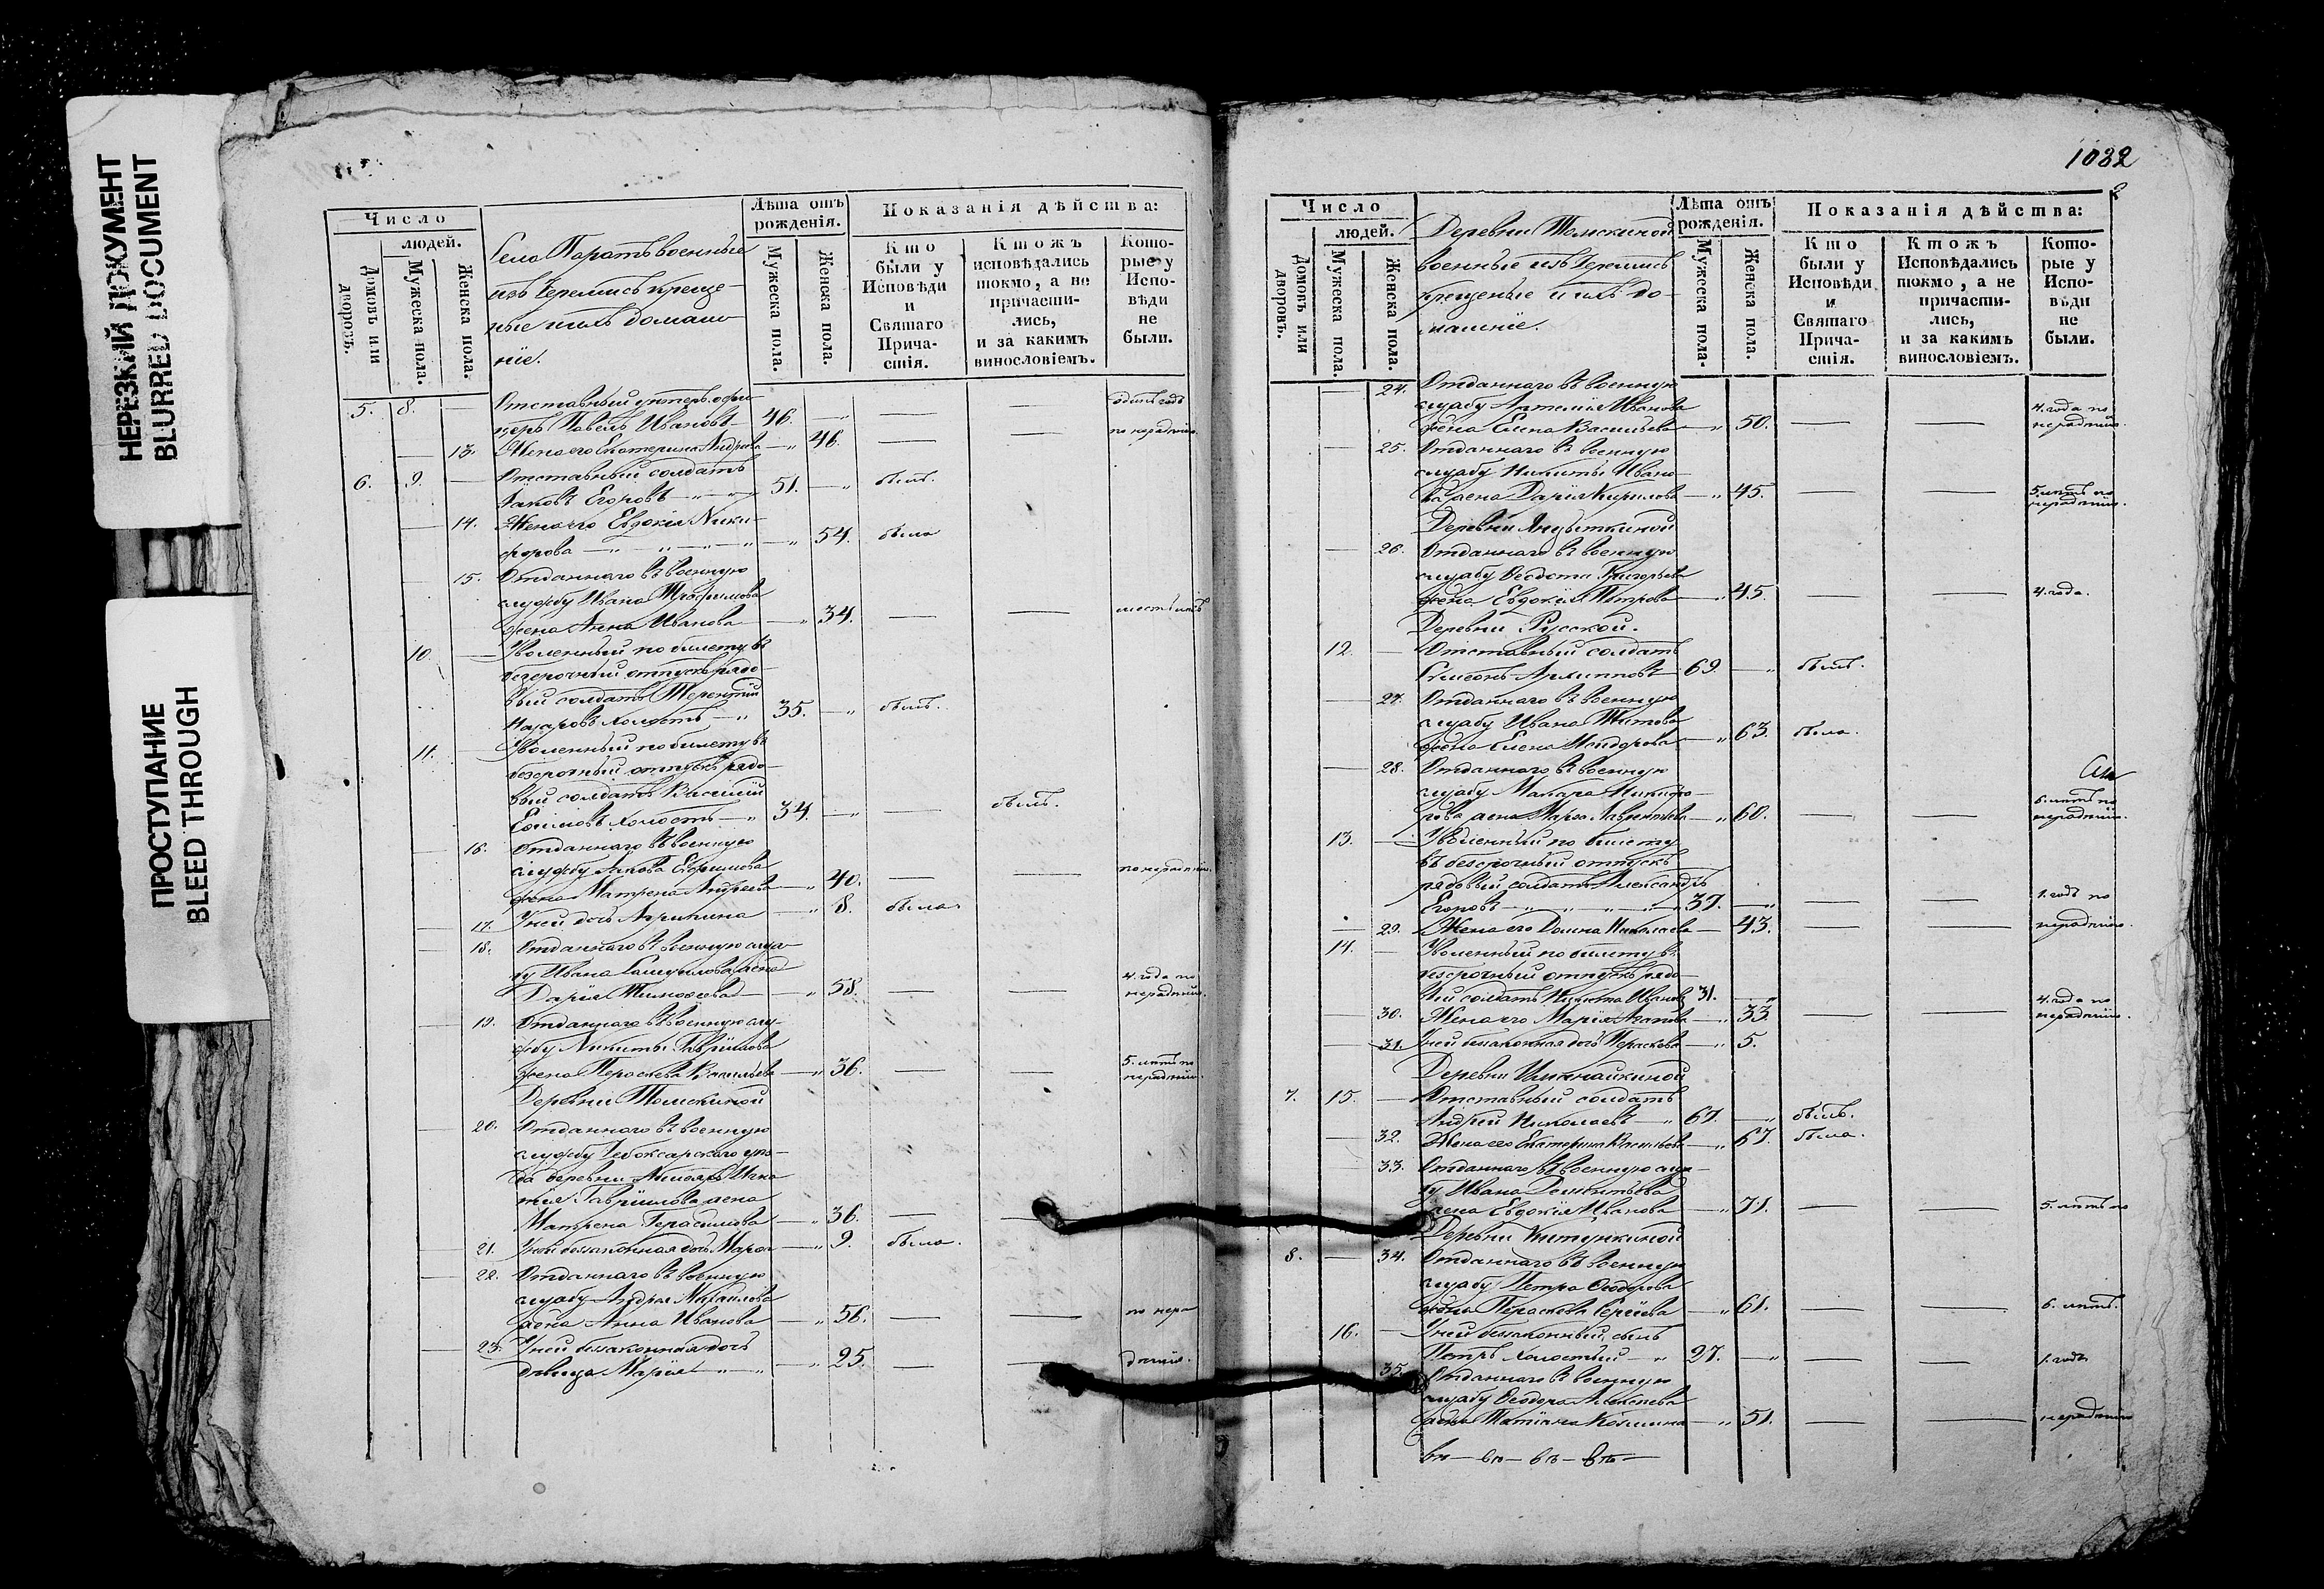 НЕРЕЗКИЙ ДОКУМЕНТ
BLURRED DOCUMENT
ПРОСТУПАНИЕ
BLEED THROUGH
Число
людей.
Домовъ или дворовъ.
Мужеска пола.
Женска пола.
Села Паратъ военные
изъ черемисъ креще-
ные и ихъ домаш-
ніе.
Лѣта отъ рожденія.
Мужеска пола.
Женска пола.
Показанія дѣйства:
Кто были у Исповѣди и Святаго Прича-стія.
Ктожъ исповѣдались токмо, а не причасти-лись, и за какимъ винословіемъ.
Кото-рые у Испо-вѣди не были.
5. 8. — Отставный унтеръ-офи- одинъ годъ
церъ Павелъ Ивановъ — 46. — — — по нерадѣнію.
— 13. Жена его Екатерина Андреева — 46. — —
6. 9. — Отставный солдатъ
Яковъ Егоровъ — 51. — былъ.
— 14. Жена его Евдокія Ники-
форова — 54. была
— 15. Отданнаго въ военную
службу Ивана Трофимова
жена Анна Иванова — 34. — — шесть лѣтъ
10. — Уволенный по билету въ
безсрочный отпускъ рядо-
вый солдатъ Терентій
Назаровъ холостъ — 35. — былъ.
11. — Уволенный по билету въ
безсрочный отпускъ рядо-
вый солдатъ Василій
Ефимовъ холостъ — 34. — — былъ.
— 16. Отданнаго въ военную
службу Якова Ефримова
жена Матрена Андреева — 40. — — по нерадѣнію.
— 17. У ней дочь Агрипина — 8. была
— 18. Отданнаго въ военную служ-
бу Ивана жена
Дарія Тимофеева — 58. — — 4. года по нерадѣнію.
— 19. Отданнаго въ военную слу-
жбу Никиты Гаврилова
жена Параскева Васильева — 36. — — 5. лѣтъ по нерадѣнію.
Деревни Толшкиной
— 20. Отданнаго въ военную
службу Чебоксарскаго уѣз-
да деревни Игна-
тія Гаврилова жена
Матрена Герасимова — 36. — —
— 21. У ней беззаконная дочь Марѳа — 9. была.
— 22. Отданнаго въ военную
службу Андрея Михайлова
жена Анна Иванова — 56. — — по нера
— 23. У ней беззаконная дочь
дѣвица Марія — 25. — — дѣнію.
1082
Число
людей.
Домовъ или дворовъ.
Мужеска пола.
Женска пола.
Деревни Толшкиной
военные изъ черемисъ
крещеные и ихъ до-
машніе.
Лѣта отъ рожденія.
Мужеска пола.
Женска пола.
Показанія дѣйства:
Кто были у Исповѣди и Святаго Прича-стія.
Ктожъ Исповѣдались токмо, а не причасти-лись, и за какимъ винословіемъ.
Кото-рые у Испо-вѣди не были.
— 24. Отданнаго въ военную
службу Артемія Иванова
жена Елена Васильева — 50. — — 4. года по нерадѣнію.
— 25. Отданнаго въ военную
службу Никиты Ивано-
ва жена Дарія Кирилова — 45. — — 5. лѣтъ по нерадѣнію.
Деревни Яндыткиной
— 26. Отданнаго въ военную
службу Ѳедота Григорьева
жена Евдокія Петрова — 45. — — 4. года.
Деревни Русской.
12. — Отставный солдатъ
Симеонъ Архиповъ 69. — былъ.
— 27. Отданнаго въ военную
службу Ивана Титова
жена Елена Исидорова — 63. была.
— 28. Отданнаго въ военную
службу Макара Никифо-
рова жена Марѳа Лаврентьева — 60. — — 6. лѣтъ по нерадѣнію.
13. — Уволенный по билету
въ безсрочный отпускъ
рядовый солдатъ Александръ
Егоровъ — 37. — — — 1. годъ по
— 29. Жена его Домна Николаева — 43. — — нерадѣнію.
14. — Уволенный по билету въ
безсрочный отпускъ рядо-
вый солдатъ Никита Ивановъ 31. —
— 30. Жена его Марія Агапова — 33. — — 4. года по нерадѣнію.
— 31. У ней беззаконная дочь Параскева — 5.
Деревни
7. 15. — Отставный солдатъ
Андрей Николаевъ — 67. — былъ.
— 32. Жена его Екатерина Васильева — 67. была.
— 33. Отданнаго въ военную служ-
бу Ивана Дементьева
жена Евдокія Иванова — 71. — — 5. лѣтъ по
Деревни
8. — 34. Отданнаго въ военную
службу Петра Ѳедорова
жена Параскева Сергѣева — 61. — — 6. лѣтъ.
16. — У ней беззаконный сынъ
Петръ холостый — 27. — — — 1. годъ
35. Отданнаго въ военную
службу Ѳеодора Алексѣева
жена Татіана Козмина — 51. — — нерадѣнію